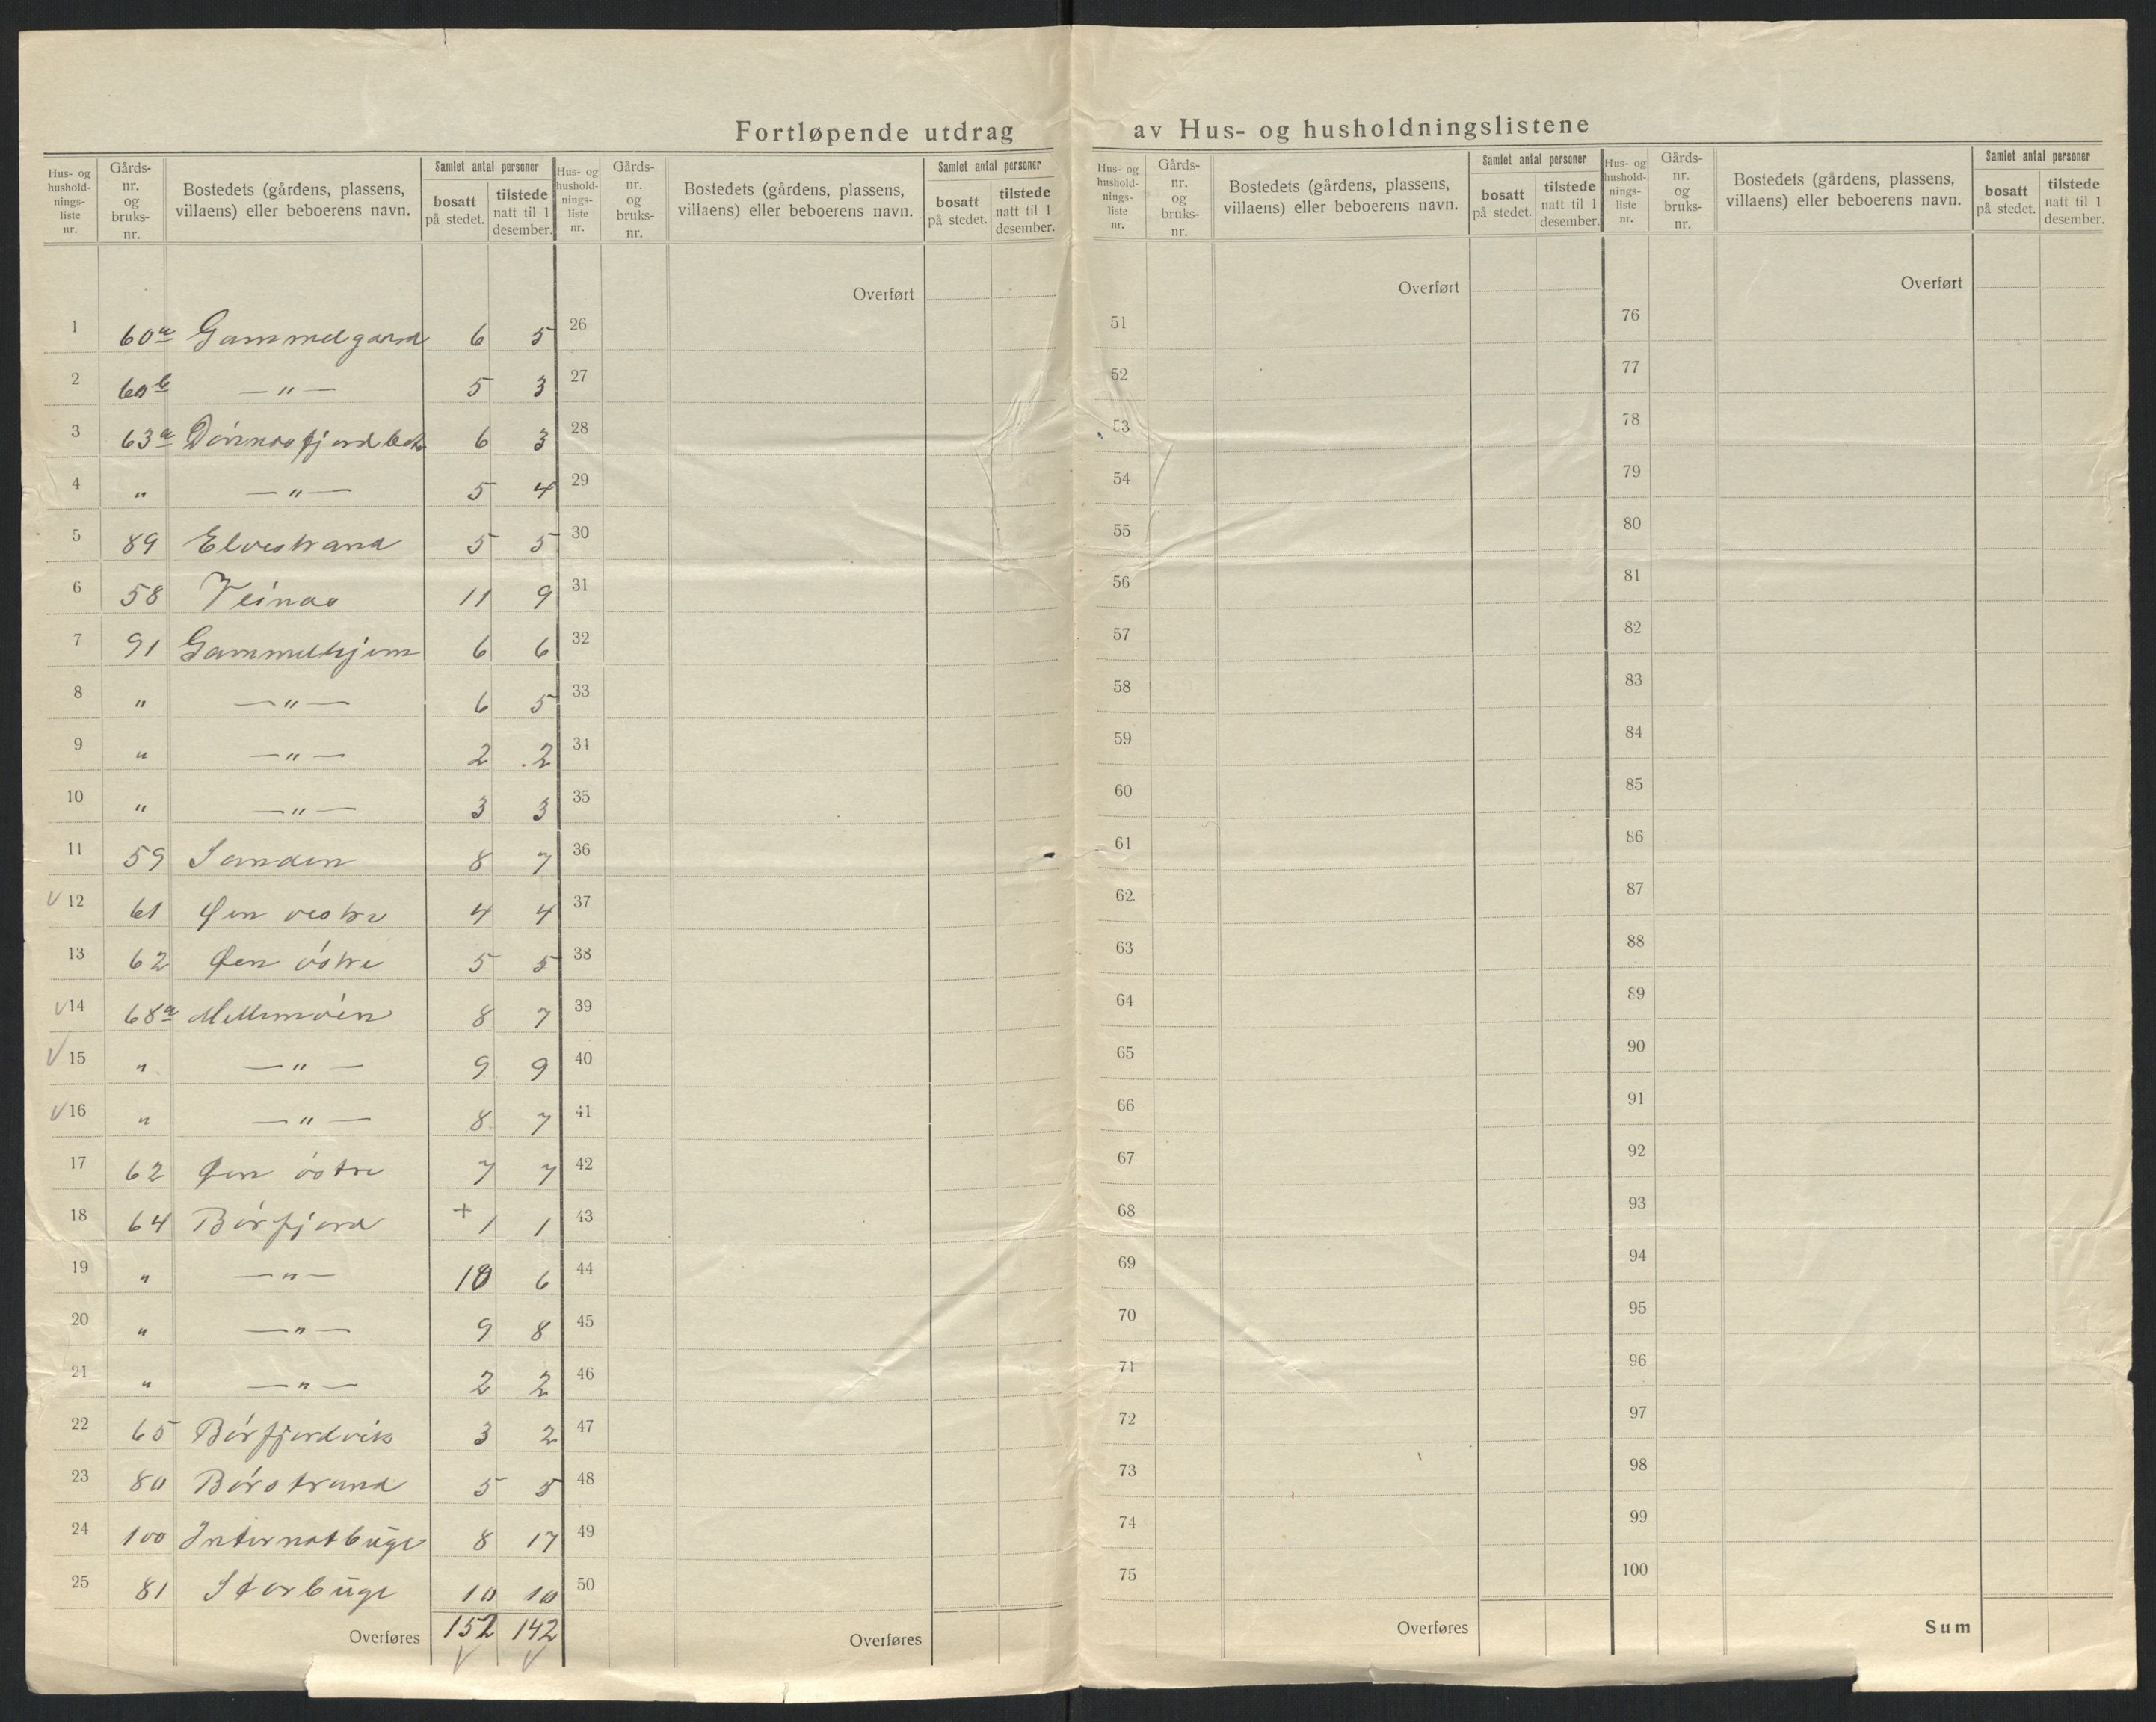 Fortløpende utdrag av Hus- og husholdningslistene
Hus- og hushold-nings-liste nr. Gårds-nr. og bruks-nr. Bostedets (gårdens, plassens, villaens) eller beboerens navn. Samlet antal personer bosatt på stedet. tilstede natt til 1 desember.
Hus- og hushold-nings-liste nr. Gårds-nr. og bruks-nr. Bostedets (gårdens, plassens, villaens) eller beboerens navn. Samlet antal personer bosatt på stedet. tilstede natt til 1 desember.
Hus- og hushold-nings-liste nr. Gårds-nr. og bruks-nr. Bostedets (gårdens, plassens, villaens) eller beboerens navn. Samlet antal personer bosatt på stedet. tilstede natt til 1 desember.
Hus- og hushold-nings-liste nr. Gårds-nr. og bruks-nr. Bostedets (gårdens, plassens, villaens) eller beboerens navn. Samlet antal personer bosatt på stedet. tilstede natt til 1 desember.
1 60a Gammelgaard 6 5
2 60b —"— 5 3
3 63a 6 3
4 " —"— 5 4
5 89 Elvestrand 5 5
6 58 Veines 11 9
7 91 Gammelhjem 6 6
8 " —"— 6 5
9 " —"— 2 2
10 " —"— 3 3
11 59 Sanden 8 7
√ 12 61 Øen vestre 4 4
13 62 Øen östre 5 5
√ 14 68a Mellemöen 8 7
√ 15 " —"— 9 9
√ 16 " —"— 8 7
17 62 Øen östre 7 7
18 64 Börfjord + 1 1
19 " —"— 10 6
20 " —"— 9 8
21 " —"— 2 2
22 65 Börfjordvik 3 2
23 80 Börstrand 5 5
24 100 Internatbugt 8 17
25 81 Storbugt 10 10
Overføres 152 142
√ √
Overført
26
27
28
29
30
31
32
33
34
35
36
37
38
39
40
41
42
43
44
45
46
47
48
49
50
Overføres
Overført
51
52
53
54
55
56
57
58
59
60
61
62
63
64
65
66
67
68
69
70
71
72
73
74
75
Overføres
Overført
76
77
78
79
80
81
82
83
84
85
86
87
88
89
90
91
92
93
94
95
96
97
98
99
100
Sum